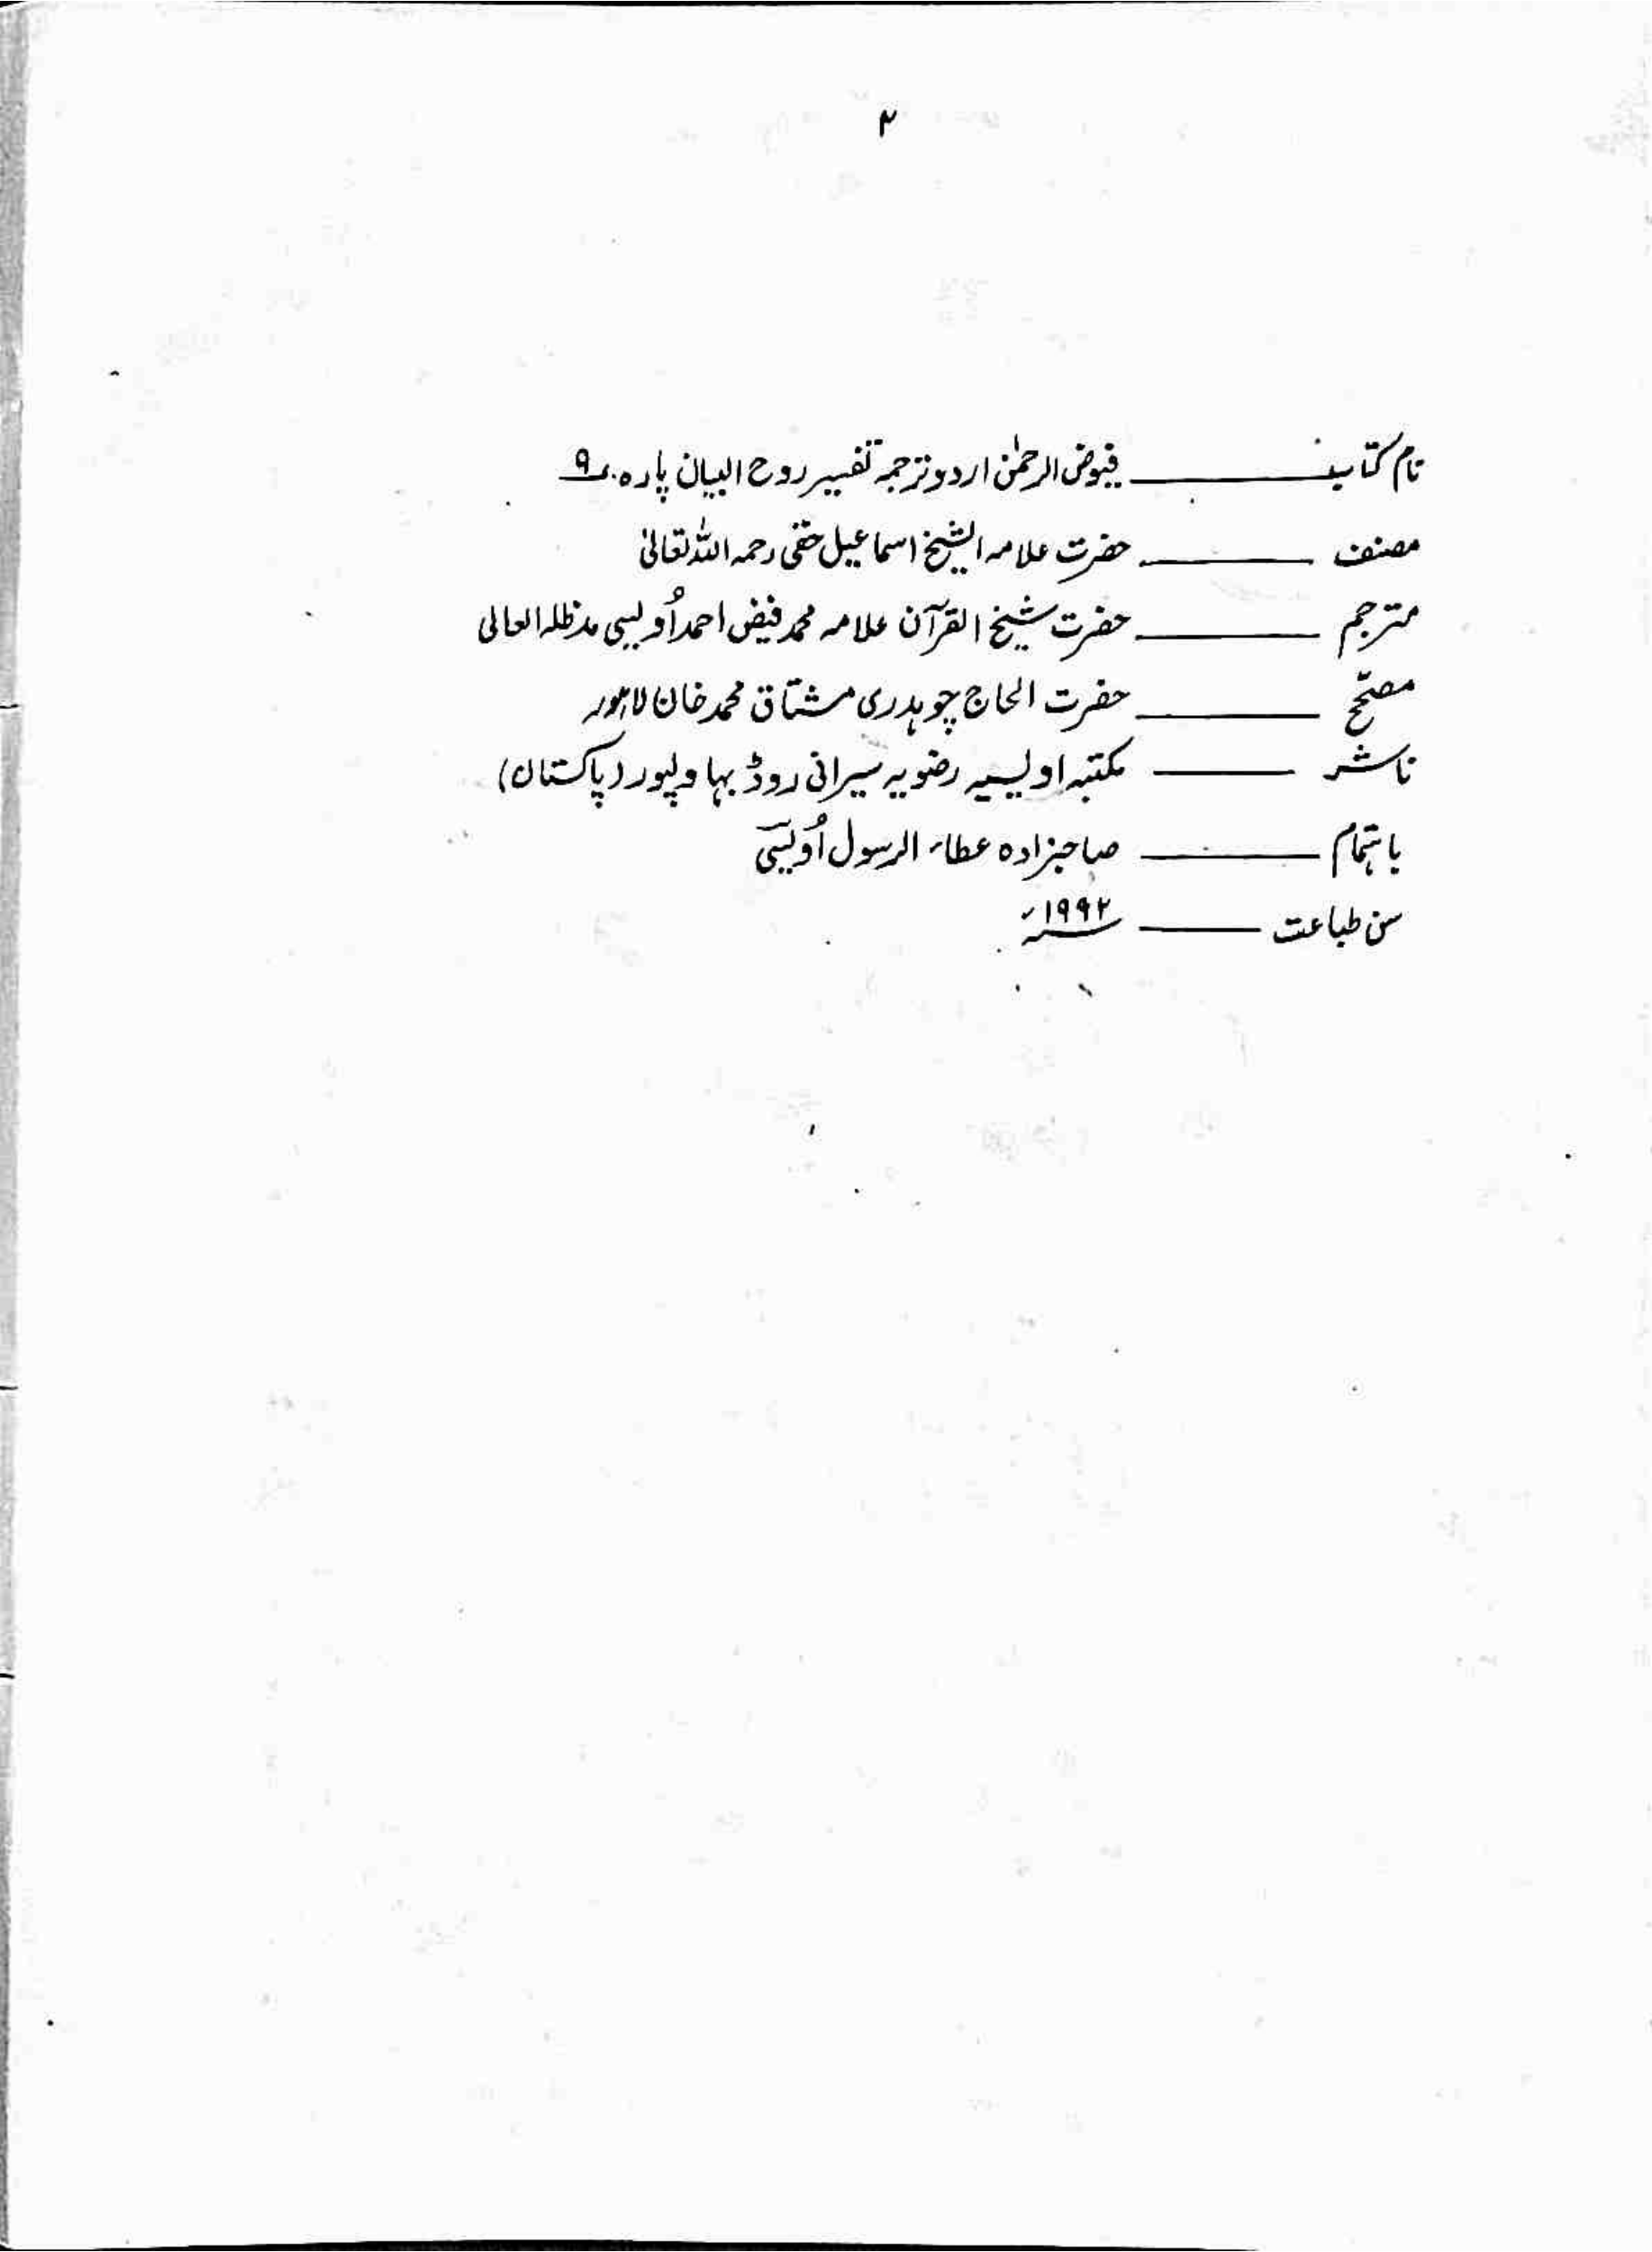 ۲
نام کتاب ________ فیوض الرحمٰن اردو ترجمہ تفسیر روح البیان پارہ ۹
مصنف ________ حضرت علامہ الشیخ اسماعیل حقی رحمہ اللہ تعالیٰ
مترجم ________ حضرت شیخ القرآن علامہ محمد فیض احمد اُویسی مدظلہ العالی
مصحّح ________ حضرت الحاج چوہدری مشتاق محمد خان لاہور
ناشر ________ مکتبہ اویسیہ رضویہ سیرانی روڈ بہاولپور (پاکستان)
باہتمام ________ صاحبزادہ عطاء الرسول اُویسی
سن طباعت ________ ۱۹۹۲ء